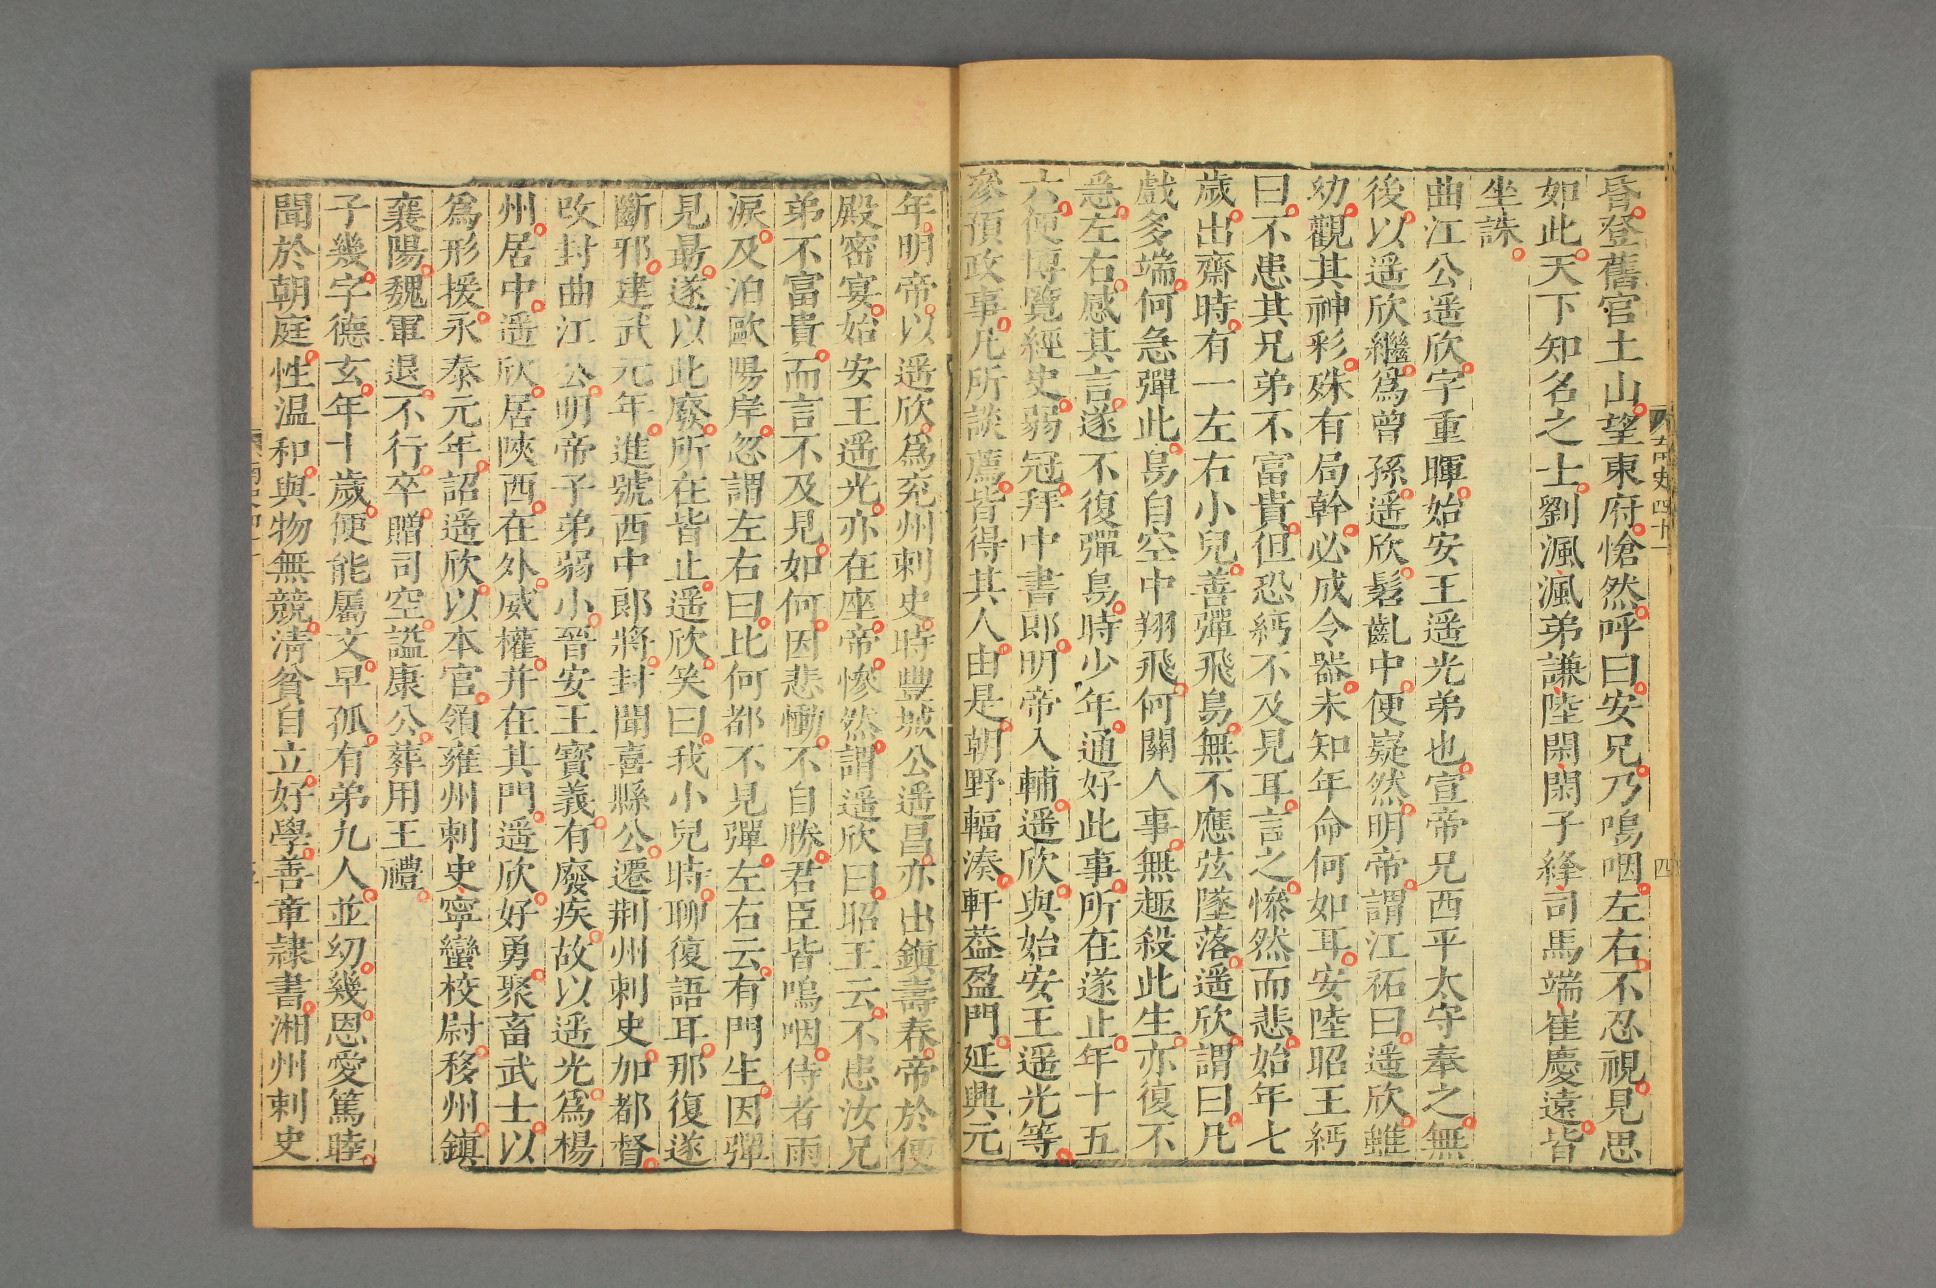 昏登舊宮土山望東府愴然呼曰安兄乃嗚咽左右不忍視見思
如此天下知名之士劉渢渢弟謙陸閑閑子絳司馬端崔慶遠皆
坐誅
曲江公遥欣字重暉始安王遥光弟也宣帝兄西平太守奉之無
後以遥欣繼爲曾孫遥欣髫齓中便嶷然明帝謂江祏曰遥欣雖
幼觀其神彩殊有局幹必成令器未知年命何如耳安陸昭王緬
曰不患其兄弟不富貴但恐緬不及見耳言之慘然而悲始年七
歲出齋時有一左右小兒善彈飛鳥無不應弦墜落遥欣謂曰凡
戲多端何急彈此鳥自空中翔飛何關人事無趣殺此生亦復不
急左右感其言遂不復彈鳥時少年通好此事所在遂止年十五
六便博覽經史弱冠拜中書郎明帝入輔遥欣與始安王遥光等
參預政事凡所談薦皆得其人由是朝野輻湊軒葢盈門延興元
年明帝以遥欣爲兖州刺史時豐城公遥昌亦出鎮壽春帝於便
殿密宴始安王遥光亦在座帝慘然謂遥欣曰昭王云不患汝兄
弟不富貴而言不及見如何因悲慟不自勝君臣皆嗚咽侍者雨
淚及泊歐陽岸忽謂左右曰比何都不見彈左右云有門生因彈
見勗遂以此廢所在皆止遥欣笑曰我小兒時聊復語耳那復遂
斷邪建武元年進號西中郎將封聞喜縣公遷荆州刺史加都督
改封曲江公明帝子弟弱小晉安王寳義有廢疾故以遥光爲楊
州居中遥欣居陜西在外威權并在其門遥欣好勇聚畜武士以
爲形援永泰元年詔遥欣以本官領雍州刺史寧蠻校尉移州鎮
襄陽魏軍退不行卒贈司空謚康公葬用王禮
子幾字德玄年十歲便能屬文早孤有弟九人並幼幾恩愛篤睦
聞於朝庭性温和與物無競清貧自立好學善草隷書湘州刺史
南史四十一
四